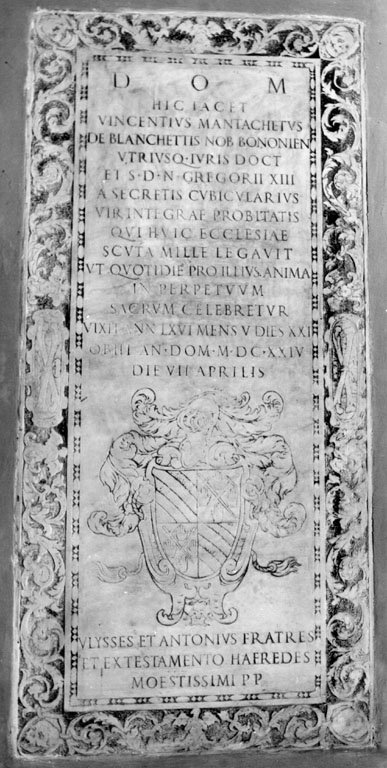 D O M
HIC IACET
VINCENTIVS MANTACHETVS
DE BLANCHETTIS NOB BONONIEN
VTRIVSQ·IVRIS DOCT
ET S·D·N·GREGORII XIII
A SECRETIS CVBICVLARIVS
VIR INTEGRAE PROBITATIS
QVI HVIC ECCLESIAE
SCVTA MILLE LEGAVIT
VT QVOTIDIE PRO ILLIVS ANIMA
IN PERPETVVM
SACRVM CELEBRETVR
VIXIT ANN LXVI MENS V DIES XXI
OBIIT AN·DOM·M·DC·XXIV
DIE VII APRILIS
VLYSSES ET ANTONIVS FRATRES
ET EX TESTAMENTO HAEREDES
MOESTISSIMI P P